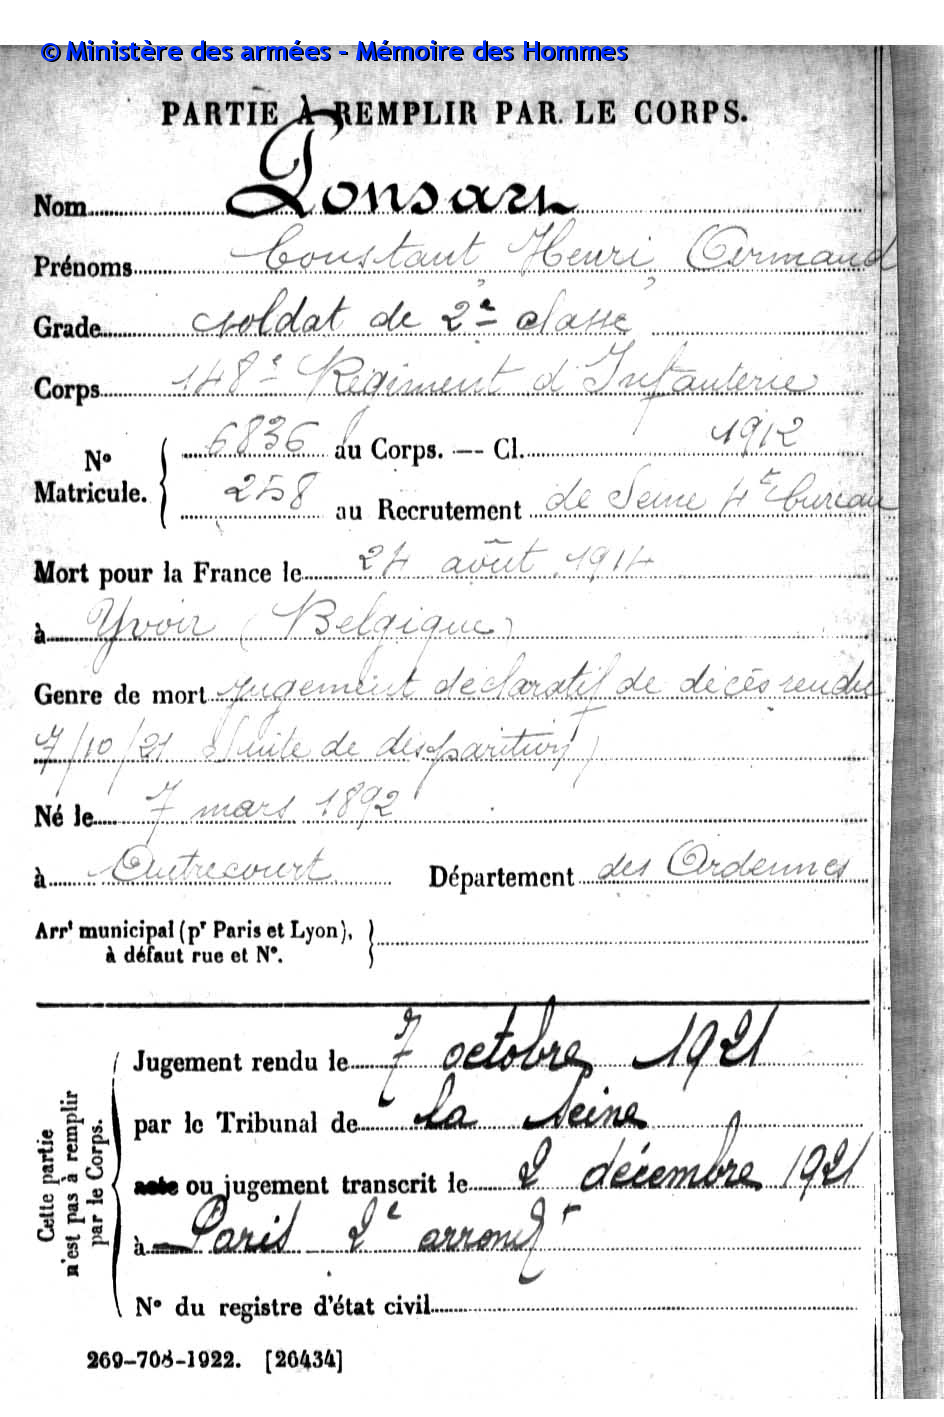 © Ministère des armées - Mémoire des Hommes
PARTIE À REMPLIR PAR LE CORPS.
Nom Ponsart
Prénoms Constant, Henri, Armand
Grade soldat de 2e classe
Corps 148e Régiment d'Infanterie
No Matricule. 6836 au Corps. — Cl. 1912
258 au Recrutement de Seine 4e bureau
Mort pour la France le 24 août 1914
à Yvoir (Belgique)
Genre de mort jugement déclaratif de décès rendu
7/10/21 (suite de disparition)
Né le 7 mars 1892
à Autrecourt Département des Ardennes
Arrt municipal (pr Paris et Lyon),
à défaut rue et No.
Cette partie
n'est pas à remplir
par le Corps.
Jugement rendu le 7 octobre 1921
par le Tribunal de la Seine
acte ou jugement transcrit le 2 décembre 1921
à Paris 2e arrondt
No du registre d'état civil
269-708-1922. [26434]